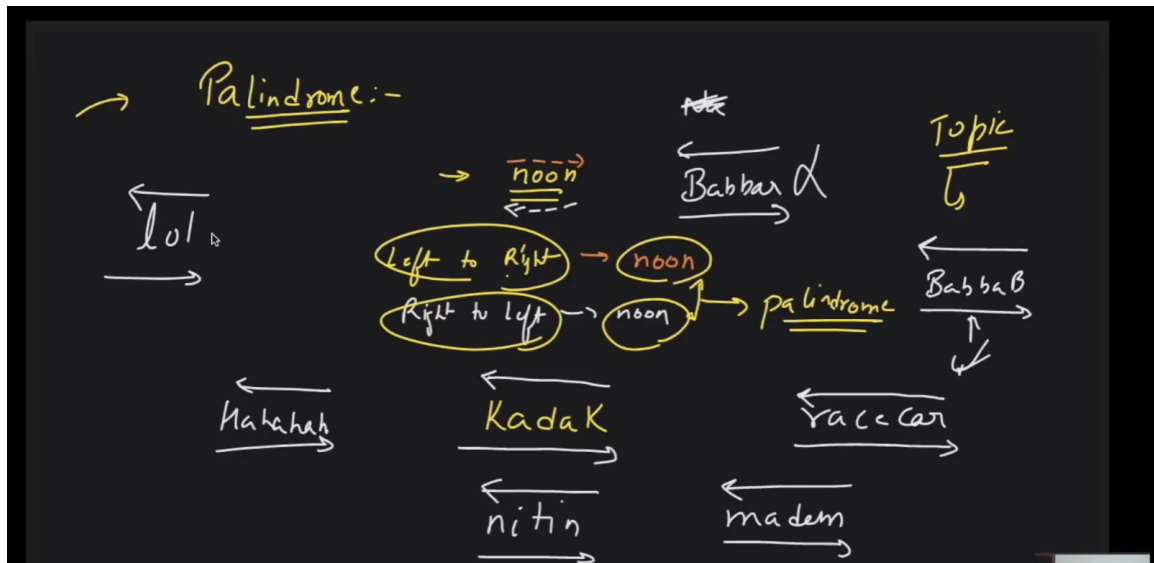 Palindrome:-
Topic
noon
Babbar
lol
Left to Right → noon
Right to Left → noon
palindrome
BabbaB
Hahahah
KadaK
racecar
nitin
madem